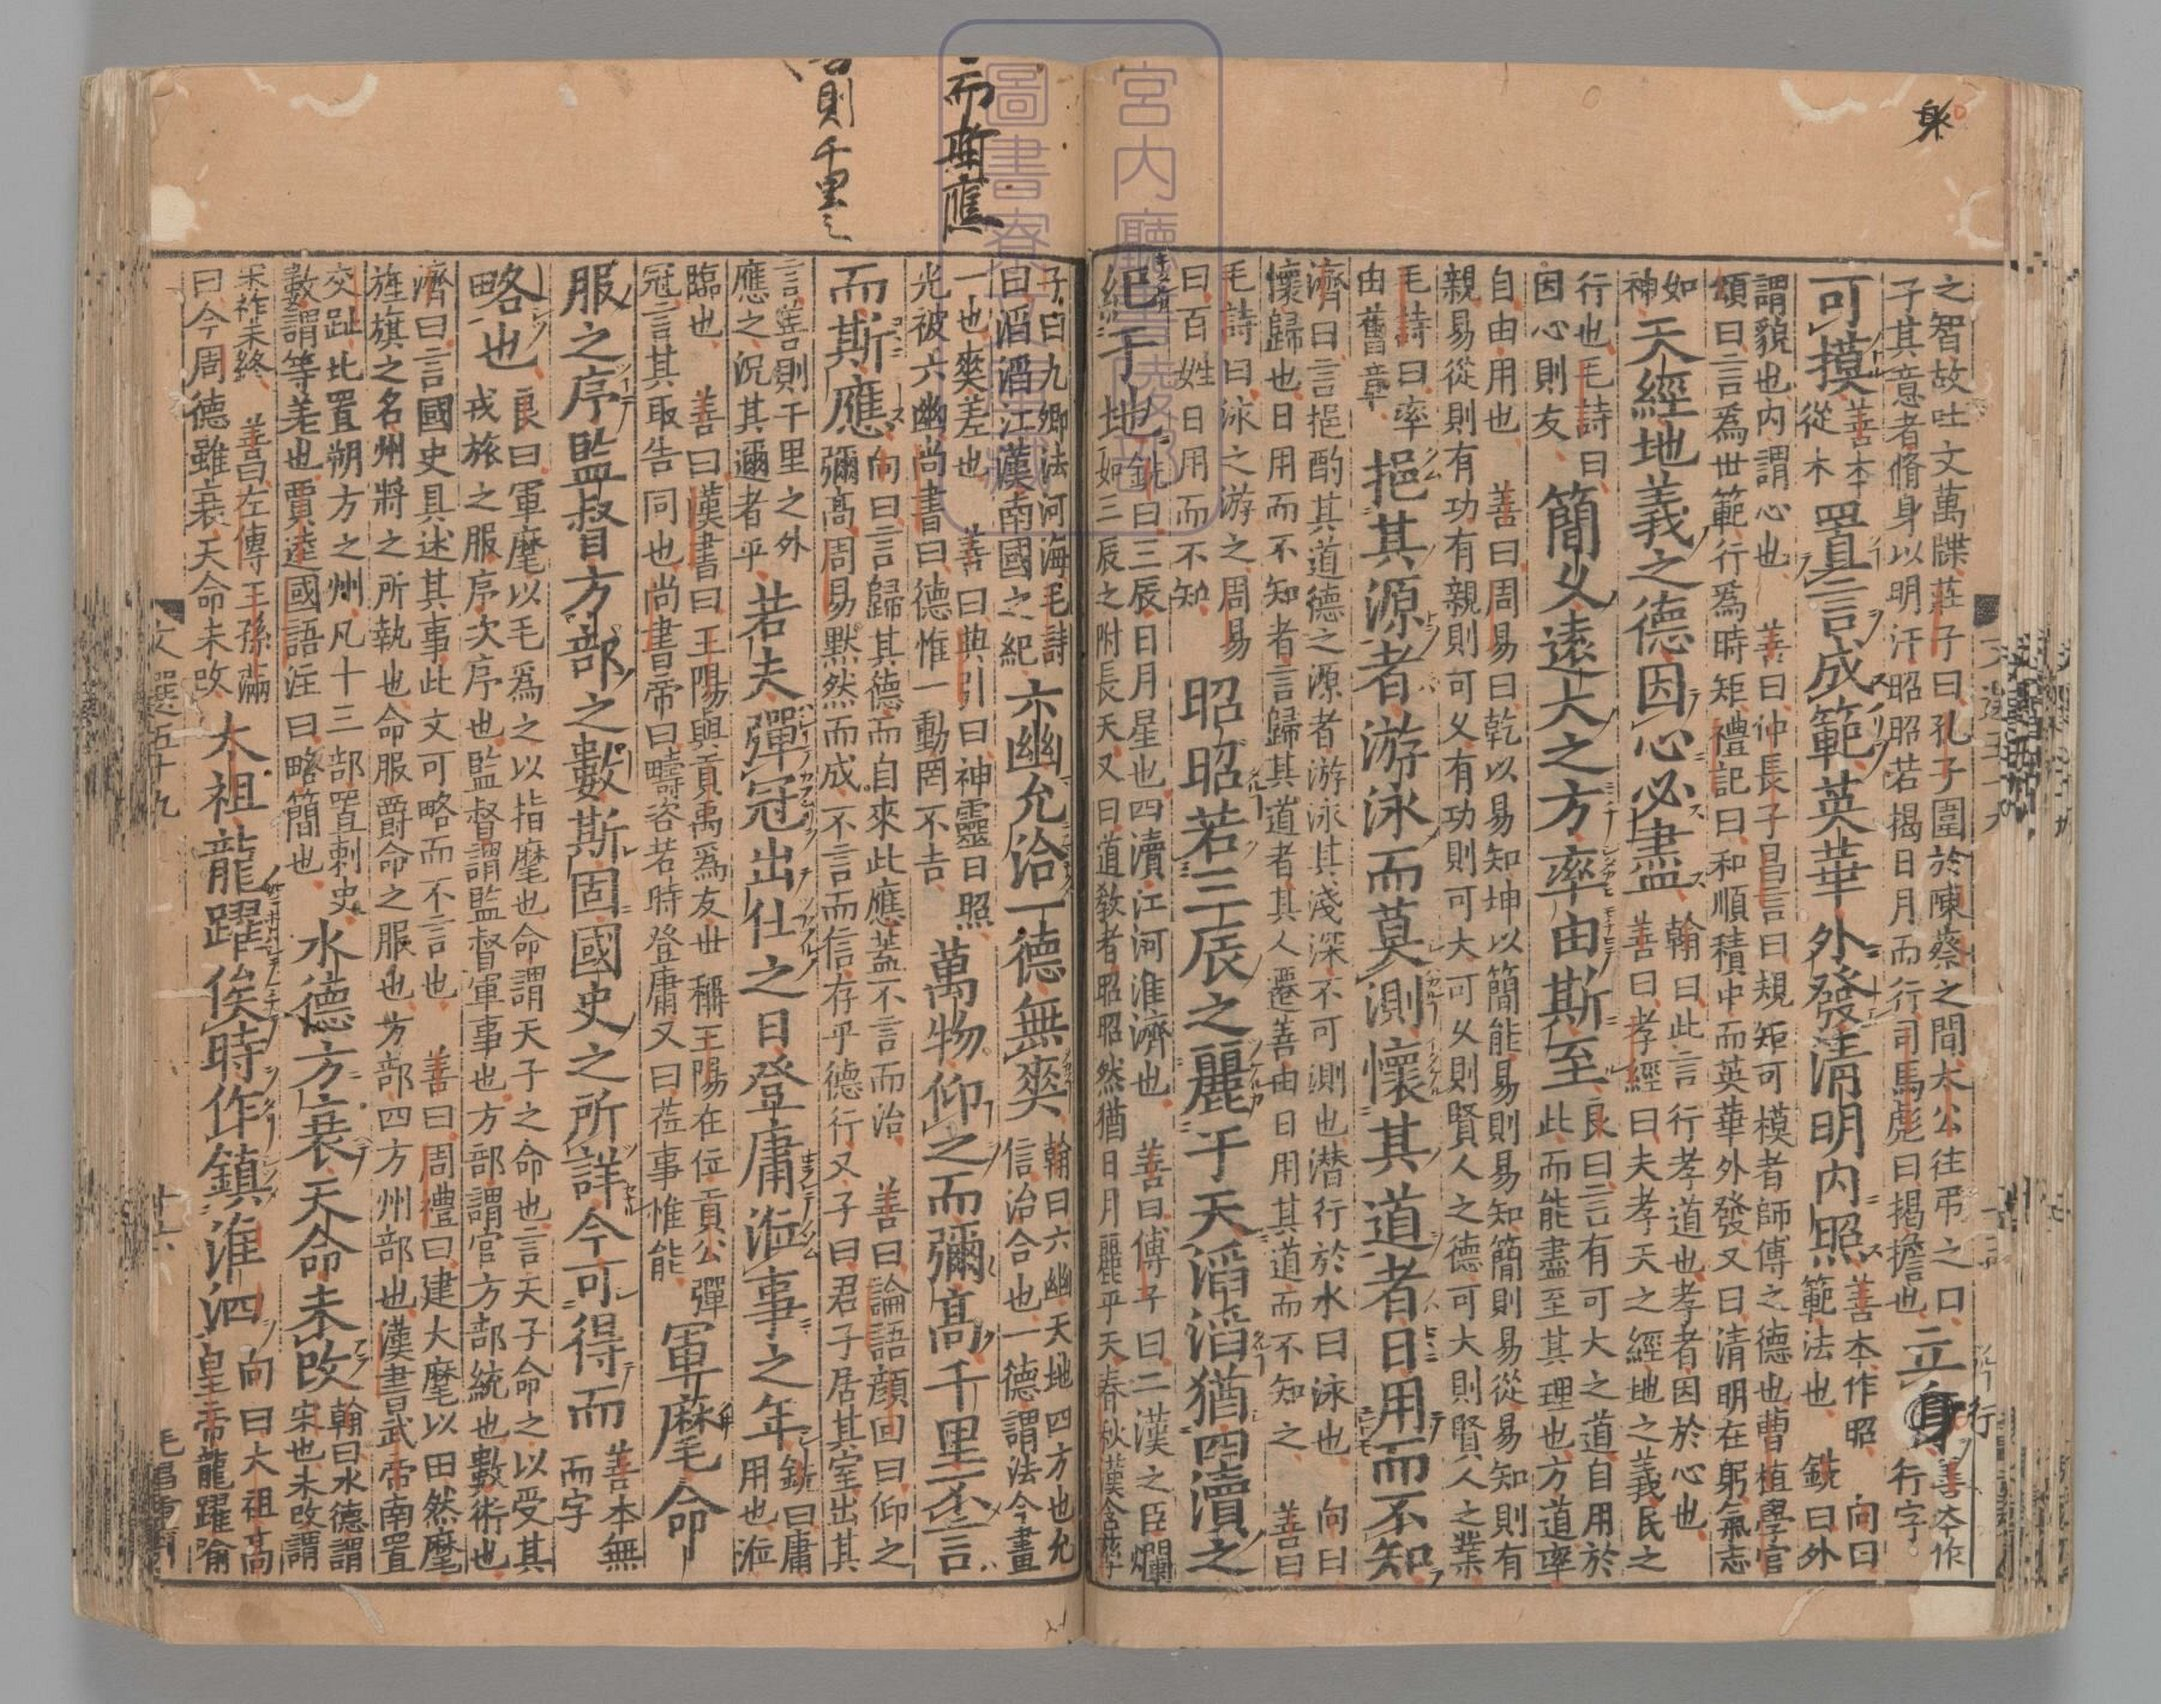 之智故吐文萬牒莊子曰孔子圍於陳蔡之間太公往弔之曰
子其意者脩身以明汙昭昭若揭日月而行司馬彪曰揭擔也
立身行
善本作
行字
可摸
善本
從木
置言成範英華外發清明內照
善本作昭 向曰
範法也 銑曰外
謂貌也內謂心也 善曰仲長子昌言曰規矩可模者師傅之德也曹植學官
頌曰言為世範行為時矩禮記曰和順積中而英華外發又曰清明在躬氣志
如
神
天經地義之德因心必盡
翰曰此言行孝道也孝者因於心也
善曰孝經曰夫孝天之經地之義民之
行也毛詩曰
因心則友
簡乂遠大之方率由斯至
良曰言有可大之道自用於
此而能盡至其理也方道率
自由用也 善曰周易曰乾以易知坤以簡能易則易知簡則易從易知則有
親易從則有功有親則可久有功則可大可久則賢人之德可大則賢人之業
毛詩曰率
由舊章
挹其源者游泳而莫測懷其道者日用而不知
濟曰言挹酌其道德之源者游泳其淺深不可測也潛行於水曰泳也 向曰
懷歸也日用而不知者言歸其道者其人遷善由日用其道而不知之 善曰
毛詩曰泳之游之周易
曰百姓日用而不知
昭昭若三辰之麗于天滔滔猶四瀆之
紀于地
銑曰三辰日月星也四瀆江河淮濟也 善曰傅子曰二漢之臣爛
如三辰之附長天又曰道教者昭昭然猶日月麗乎天春秋漢含孳
子曰九卿法河海毛詩
曰滔滔江漢南國之紀
六幽允洽一德無爽
翰曰六幽天地四方也允
信洽合也一德謂法令畫
一也爽差也 善曰典引曰神靈日照
光被六幽尚書曰德惟一動罔不吉
萬物仰之而彌高千里不言
而斯應
向曰言歸其德而自來此應蓋不言而治 善曰論語顏回曰仰之
彌高周易默然而成不言而信存乎德行又子曰君子居其室出其
言善則千里之外
應之況其邇者乎
若夫彈冠出仕之日登庸涖事之年
銑曰庸
用也涖
臨也 善曰漢書曰王陽與貢禹為友世稱王陽在位貢公彈
冠言其取告同也尚書帝曰疇咨若時登庸又曰莅事惟能
軍麾命
服之序監督方部之數斯固國史之所詳今可得而
善本無
而字
略也
良曰軍麾以毛為之以指麾也命謂天子之命也言天子命之以受其
戎旅之服序次序也監督謂監督軍事也方部謂官方部統也數術也
濟曰言國史具述其事此文可略而不言也 善曰周禮曰建大麾以田然麾
旌旗之名州將之所執也命服爵命之服也方部四方州部也漢書武帝南置
交趾比置朔方之州凡十三部置刺史
數謂等差也賈逵國語注曰略簡也
水德方衰天命未改
翰曰水德謂
宋也未改謂
宋祚未終 善曰左傳王孫滿
曰今周德雖衰天命未改
太祖龍躍俟時作鎮淮泗
向曰太祖高
皇帝龍躍喻
文選五十九
身
而斯應
則千里之
宮內廳
圖書寮